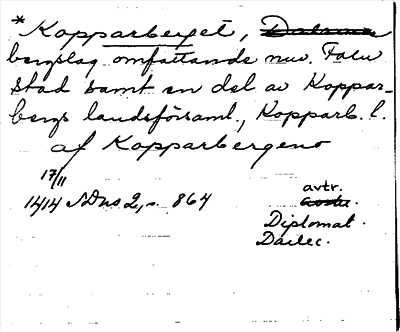 * Kopparberget, Dalarna
bergslag omfattande nuv. Falu
stad samt en del av Koppar-
bergs landsförsaml., Kopparb. l.
af Kopparbergeno
17/11
1414 SDns 2, s. 864
avtr.
Diplomat.
Dailec.